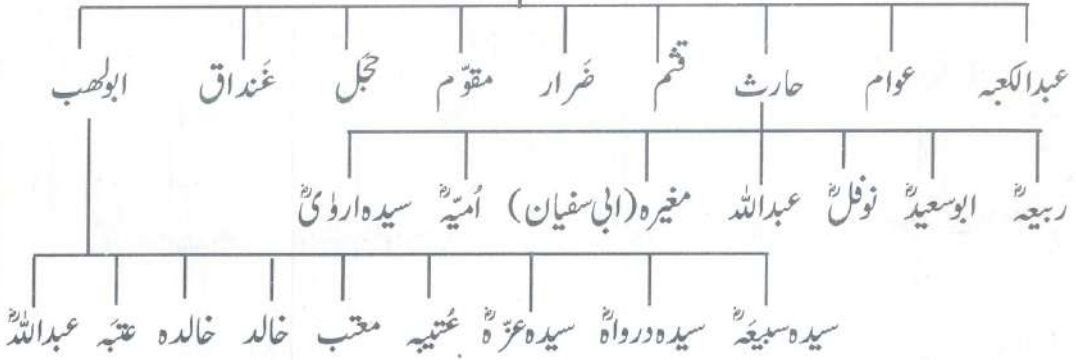 عبدالکعبہ عوام حارث قثم ضَرار مقوّم حَجَل غَنداق ابولھب
ربیعہؓ ابوسعیدؓ نوفلؓ عبداللہ مغیرہ(ابی سفیان) اُمیّہؓ سیدہ ارویٰؓ
سیدہ سبیعَہؓ سیدہ درواہؓ سیدہ عزّہؓ عُتیبہ معتب خالد خالدہ عتبَہ عبداللہؓ